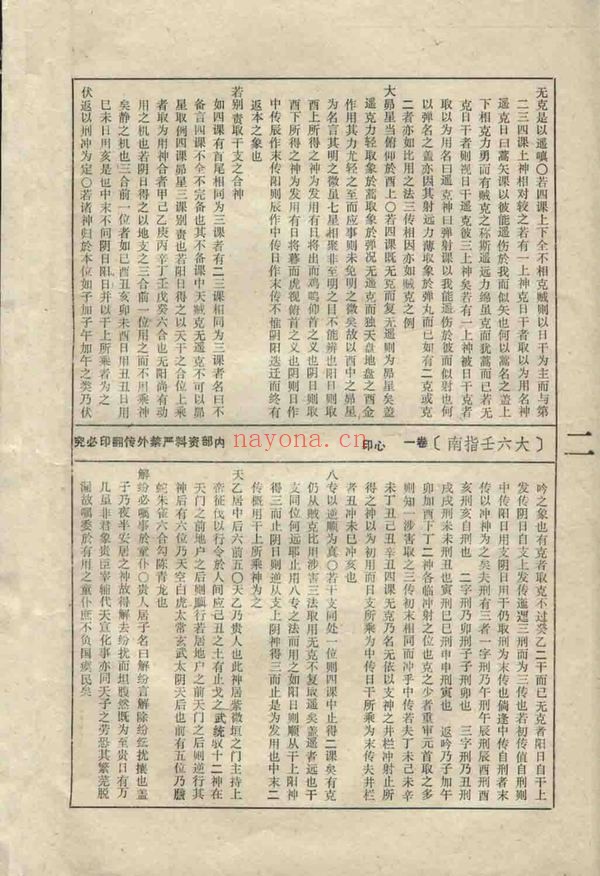 无克是以遥嗔〇若四课上下全不相克贼则以日干为主而与第
二三四课上神相对较之若有一上神克日干者取以为用名神
遥克日曰蒿矢课以彼能遥伤于我而似矢也何以蒿名之盖上
下相克力勇而有贼克之称斯遥远力绵星克而犹蒿而已若无
克日干者则视日干遥克彼三上神矣若有一上神被日干克者
取以为用名曰遥克神曰弹射课以我能遥伤于彼而似射也何
以弹名之盖亦因其射远力薄取象于弹丸而已如有二克或克
二者亦如比用之法三传相因亦如贼克之例
大昴星当俯仰于酉上〇若四课既无克而复无遥则为昴星矣盖
遥克力轻取象于蒿取象于弹况无遥克而独天盘地盘之酉金
作用其力尤轻之至而应事则未免明之微矣故以酉中之昴星
为名言其明之微星七星相聚非至明之目不能辨也阳日则取
酉上所得之神为发用有日将出而鸡鸣仰首之义也阴日则取
酉下所得之神为发用有日将暮而虎视俯首之义也阴则日作
中传辰作末传阳则辰作中传日作末传不惟阴阳迭迁而终有
返本之象也
若别责取干支之合神
如四课有首尾相同为三课者有二三课相同为三课者名曰不
备言四课不全不完备也其不备课中天贼克无遥克不可以昴
星取例四课昴星三课别责也若阳日得之以天干之合位上乘
者取为用神合者甲己乙庚丙辛丁壬戊癸六合也无刚尚有动
用之机也若阴日得之以地支之三合前一位用之而不用乘神
矣静之机也三合前一位者如巳酉丑亥卯未酉日用丑丑日用
巳未日用亥是也中末不同阴日阳日并以干上所乘者为之
伏返以刑冲为定〇若诸神归于本位如子加子午加午之类乃伏
二
大六壬指南〕
卷一
心印
内部资料严禁外传翻印必究
吟之象也有克者取克不过癸乙二干而已无克者阳日自干上
发传阴日自支上发传迤逦三刑而为三传也若初传值自刑则
中传阳日用支阴日用干仍取刑为末传也倘逢中传自刑者末
传以冲神为之矣夫刑有三者一字刑乃午刑午辰刑辰酉刑酉
亥刑亥自刑也　二字刑乃卯刑子子刑卯也　三字刑乃丑刑
戌戌刑未未刑丑也寅刑巳巳刑申申刑寅也　返吟乃子加午
卯加酉下丁二神各临冲射之位也克之少者重审元首取之多
则知一涉害取之三传初末相同而冲乎中传若夫丁未己未辛
未丁丑己丑辛丑四课无克乃名无依以支神之井栏冲射止所
得之神以为初用而日支所乘为中传日干所乘为末传夫井栏
者丑冲未巳冲亥也
八专以逆顺为真〇若干支同处一位则四课中止得二课矣有克
仍从贼克比用涉害三法取用无克不复取遥矣盖遥者远也干
支同位何远耶止用八专之法而用之如阳日则顺从干上阳神
得三而止阴日则逆从支上阴神得三而止是为发用也中末二
传概用干上所乘神为之
天乙居中后六前五〇天乙乃贵人也此神居紫微垣之门主持上
帝征伐以行令于人间应己丑之土有止戈之武统驭十二神在
天门之前地户之后则顺行若居地户之前天门之后则逆行其
神后有六位乃天空白虎太常玄武太阴天后也前有五位乃螣
蛇朱雀六合勾陈青龙也
解纷必嘱事于童仆〇贵人居子名曰解纷言解除纷纭扰攘也盖
子乃夜半安居之神故得解去纷扰而坦腹然既为至贵日有万
几虽非君象责辅代天宣化事亦同天子之劳恐其繁芜脱
漏故嘱委于有用之童仆庶不负国虞民矣
nayona.cn